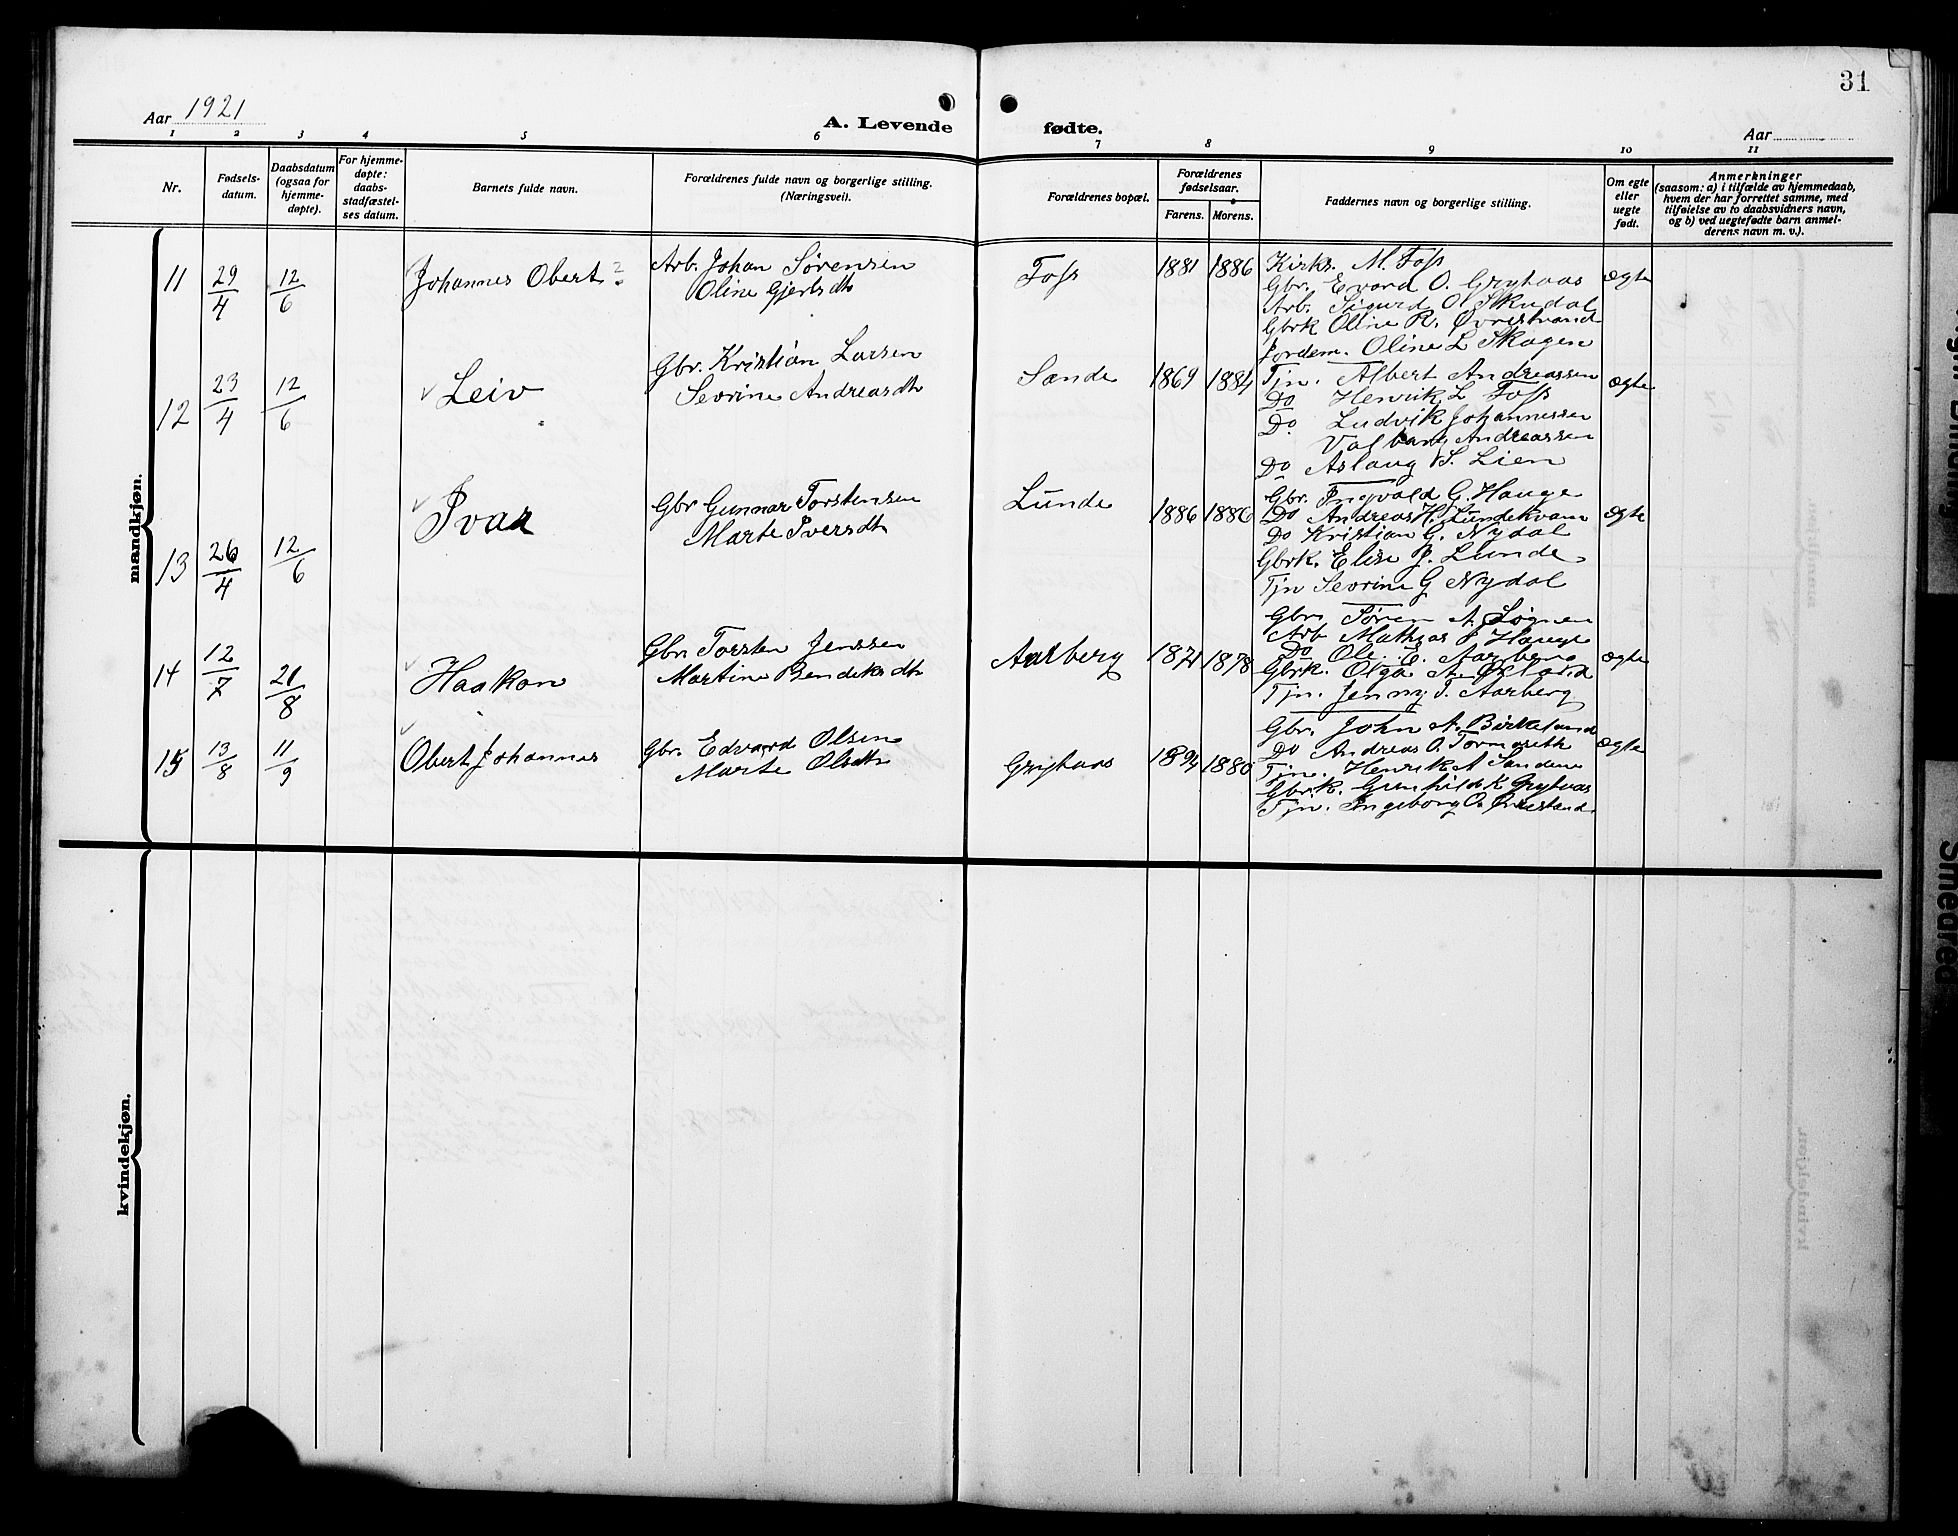 31
Aar 1921
A. Levende fødte.
Aar
1 2 3 4 5 6 7 8 9 10 11
Nr.
Fødsels-
datum.
Daabsdatum
(ogsaa for
hjemme-
døpte).
For hjemme-
døpte:
daabs-
stadfæstel-
ses datum.
Barnets fulde navn.
Forældrenes fulde navn og borgerlige stilling.
(Næringsvei).
Forældrenes bopæl.
Forældrenes
fødselsaar.
Farens. Morens.
Faddernes navn og borgerlige stilling.
Om egte
eller
uegte
født.
Anmerkninger
(saasom: a) i tilfælde av hjemmedaab,
hvem der har forrettet samme, med
tilføielse av to daabsvidners navn,
og b) ved uegtefødte barn anmel-
derens navn m. v.).
mandkjøn.
11 29/4 12/6 Johannes Obert ?
Arb. Johan Sørensen
Oline Gjertsdtr
Foss 1881 1886
Kirks. M. Foss
Gbr. Evard O. Grythaas
Arb. Sigurd O. Skudal
Gbrk Oline R. Øvrestrand
Jordem. Oline L Skagen
ægte
12 23/4 12/6 Leiv
Gbr. Kristian Larsen
Sevrine Andreasdtr
Sande 1869 1884
Tjn. Albert Andreassen
Do Henrik L Foss
Do Ludvik Johannessen
Valborg Andreassen
Do Aslaug S. Lien
ægte
13 26/4 12/6 Ivar
Gbr Gunnar Torstensen
Marte Iversdtr
Lunde 1886 1886
Gbr. Ingvald G. Hauge
Do Andreas H. Lundekvam
Do Kristian G. Nydal
Gbrk. Elise J. Lunde
Tjn Sevrine G Nydal
ægte
14 12/7 21/8 Haakon
Gbr Torsten Jenssen
Martine Bendiksdtr
Aarberg 1871 1878
Gbr. Søren A. Løgnen
Arb Mathias J. Hauge
Do Ole E. Aarberg
Gbrk. Olga A.
Tjn. Jenny T. Aarberg
ægte
15 13/8 11/9 Obert Johannes
Gbr. Edvard Olsen
Marte Olsdtr
Grythaas 1880
Gbr. John A. Birkeland
Do Andreas O.
Tjn. Henrik A Sandene
Gbrk. Gunhild K Grythaas
Tjn. Ingeborg O. Øvrestrand
ægte
kvindekjøn.